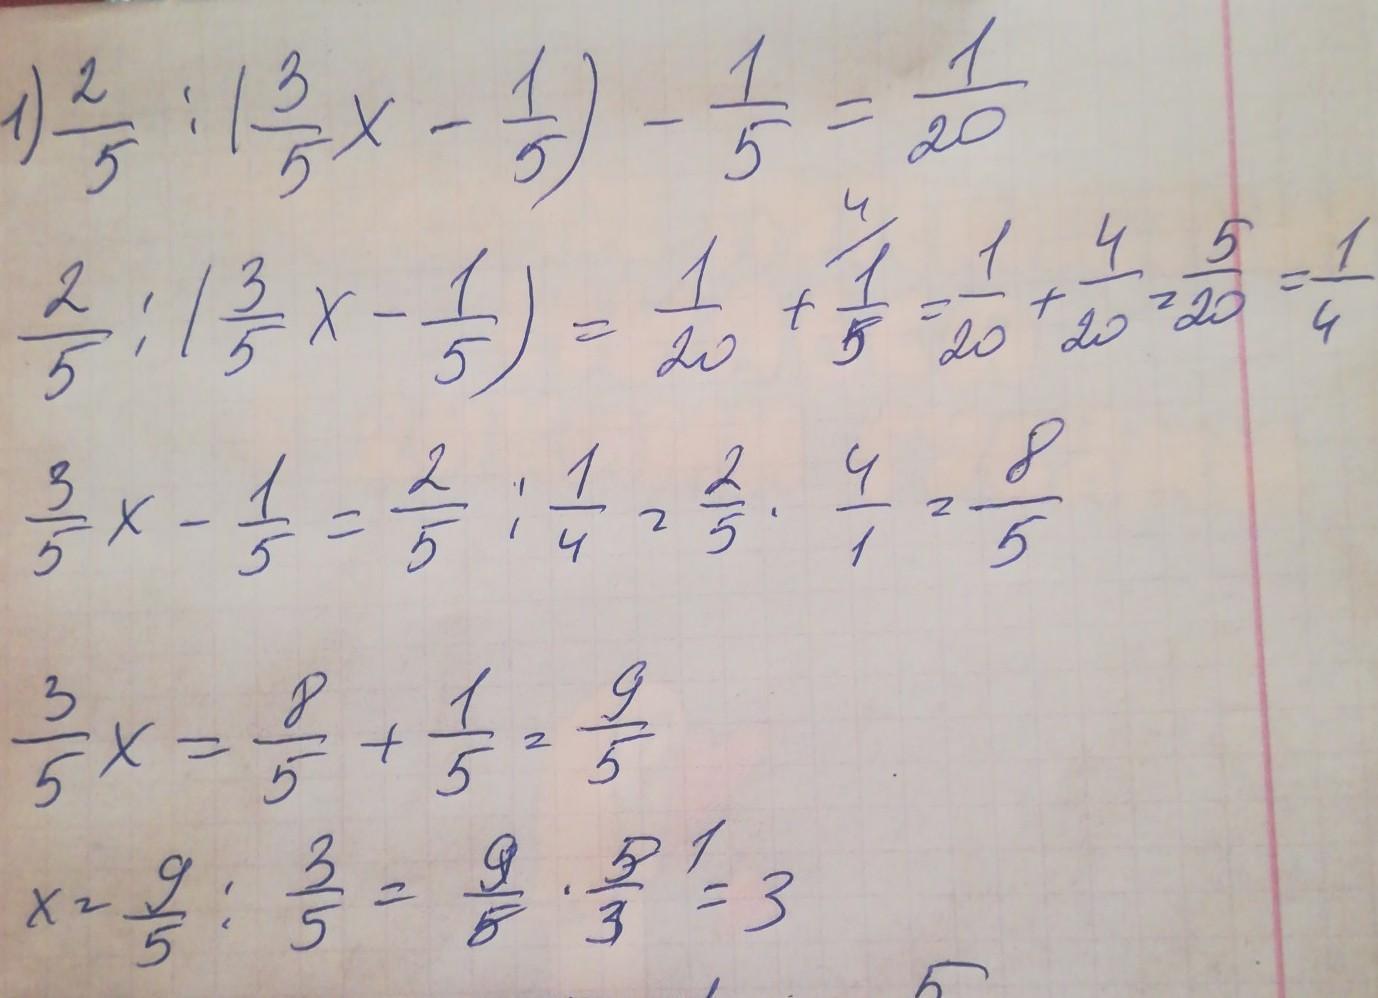 1) 2/5 : (3/5 x - 1/5) - 1/5 = 1/20
2/5 : (3/5 x - 1/5) = 1/20 + 4/ 1/5 = 1/20 + 4/20 = 5/20 = 1/4
3/5 x - 1/5 = 2/5 : 1/4 = 2/5 · 4/1 = 8/5
3/5 x = 8/5 + 1/5 = 9/5
x = 9/5 : 3/5 = 9/5 · 5/3 1 = 3